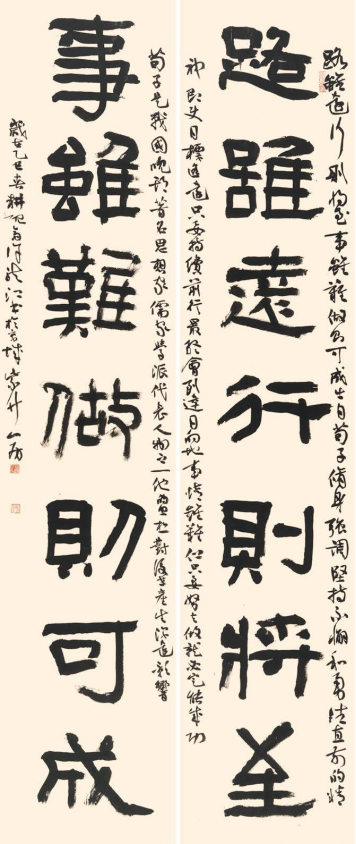 路雖遠行則將至事雖難做則可成出自荀子修身強調堅持不懈和勇往直前的精
路雖遠行則將至
神即使目標遙遠只要持續前行最終會到達目的地事情雖難但只要努力做就必定能成功
荀子是我國晚期著名思想家儒家學派代表人物之一他思想對後世產生深遠影響
事雖難做則可成
歲在乙巳春耕硯